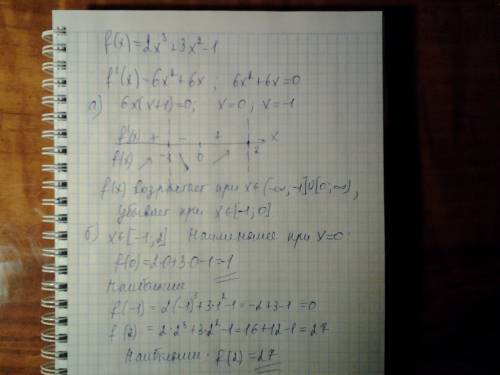 f(x)=2x³+3x²-1
f'(x)=6x²+6x, 6x²+6x=0
а) 6x(x+1)=0; x=0; x=-1
f'(x) + - + x
f(x) -1 0 2
f(x) возрастает при x∈(-∞;-1]U[0;∞),
убывает при x∈[-1;0]
б) x∈[-1;2] Наименьшее при x=0:
f(0)=2·0+3·0-1=-1
Наибольшее
f(-1)=2(-1)³+3·1²-1=-2+3-1=0
f(2)=2·2³+3·2²-1=16+12-1=27
Наибольшее f(2)=27